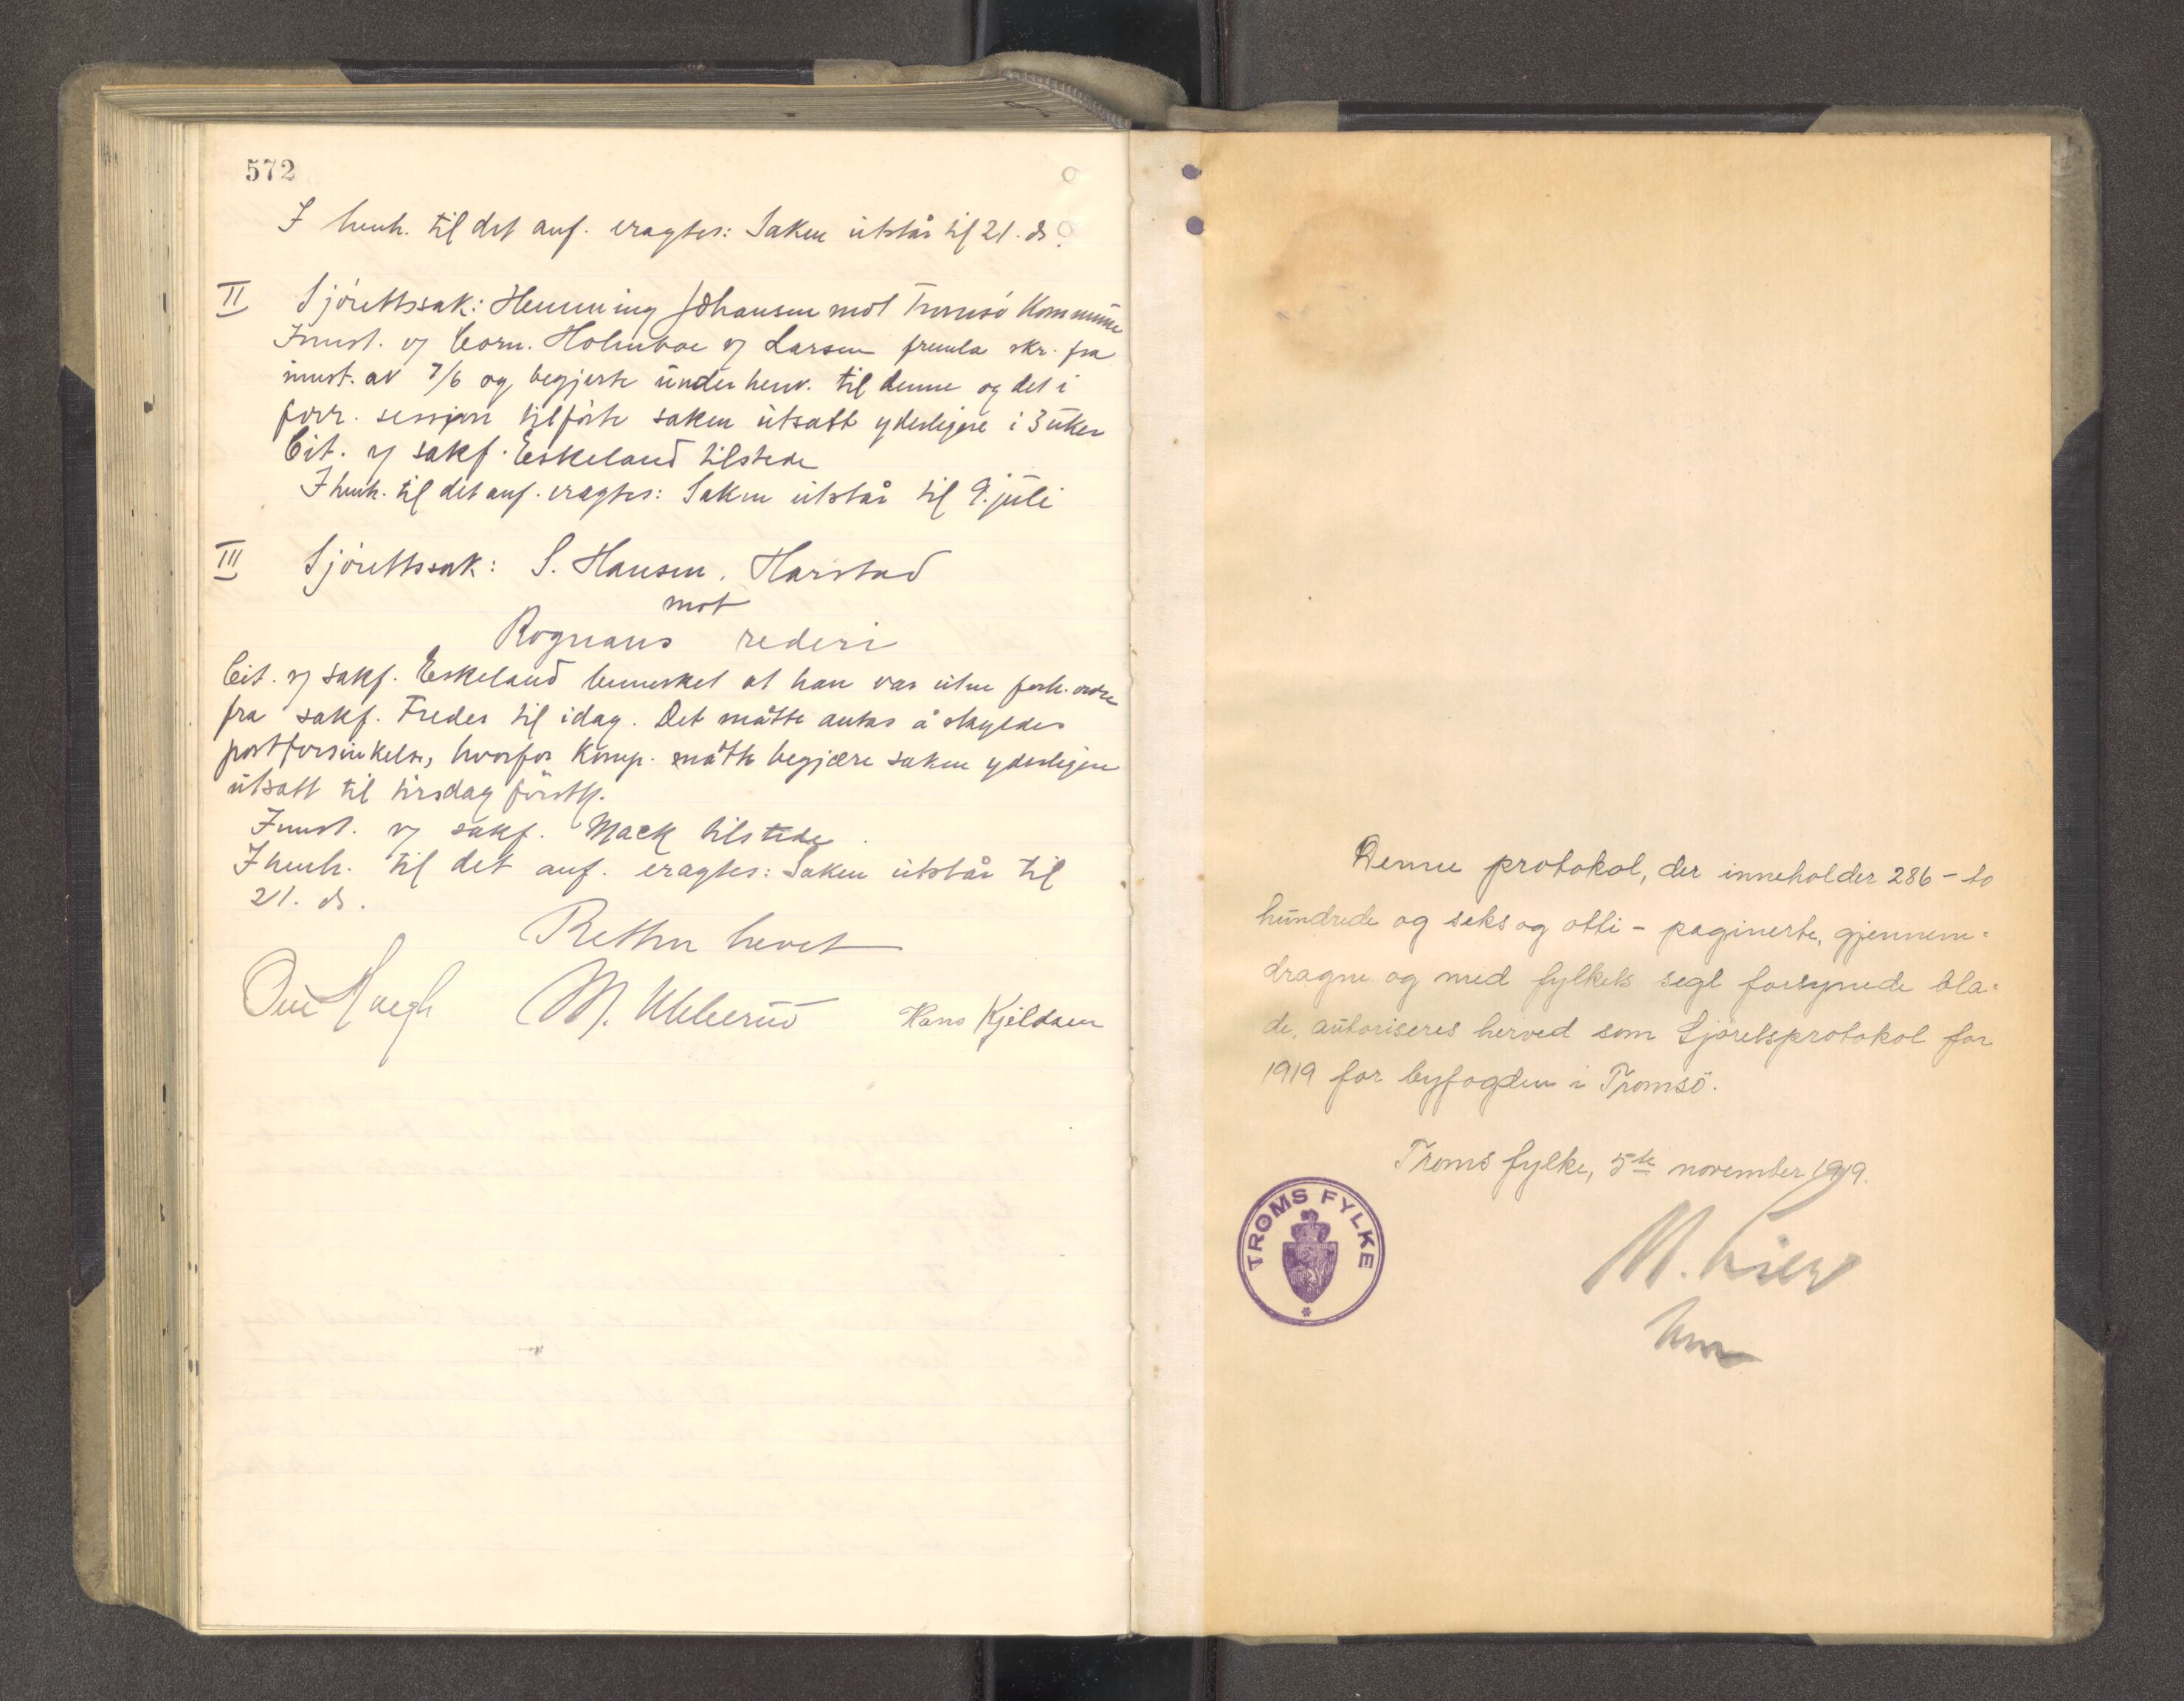 572
I henh. til det anf. eragtes: Saken utstår til 21. ds.
II Sjörettssak: Henning Johansen mot Tromsö Kommune
Innst. v/ Corn. Holmboe v/ Larsen fremla skr. fra
innst. av 7/6 og begjerte under henv. til denne og det i
forr. sesjon tilförte saken utsatt yderligere i 3 uker
Cit. v/ sakf. Eskeland tilstede
I henh. til det anf. eragtes: Saken utstår til 9. juli
III Sjörettssak: S. Hansen, Harstad
mot
Rognans rederi
Cit. v/ sakf. Eskeland bemerket at han var uten ordre
fra sakf. Freder til idag. Det måtte antas å skyldes
postforsinkelse, hvorfor komp. måtte begjære saken yderligere
utsatt til tirsdag förstk.
Innst. v/ sakf. Mack tilstede
I henh. til det anf. eragtes: Saken utstår til
21. ds.
Retten hevet
M. Hans Kjeldsen
Denne protokol, der inneholder 286 – to
hundrede og seks og otti – paginerte, gjennem-
dragne og med fylkets segl forsynede bla-
de, autoriseres herved som Sjöretsprotokol for
1919 for byfogden i Tromsö.
Troms fylke, 5te november 1919.
TROMS FYLKE